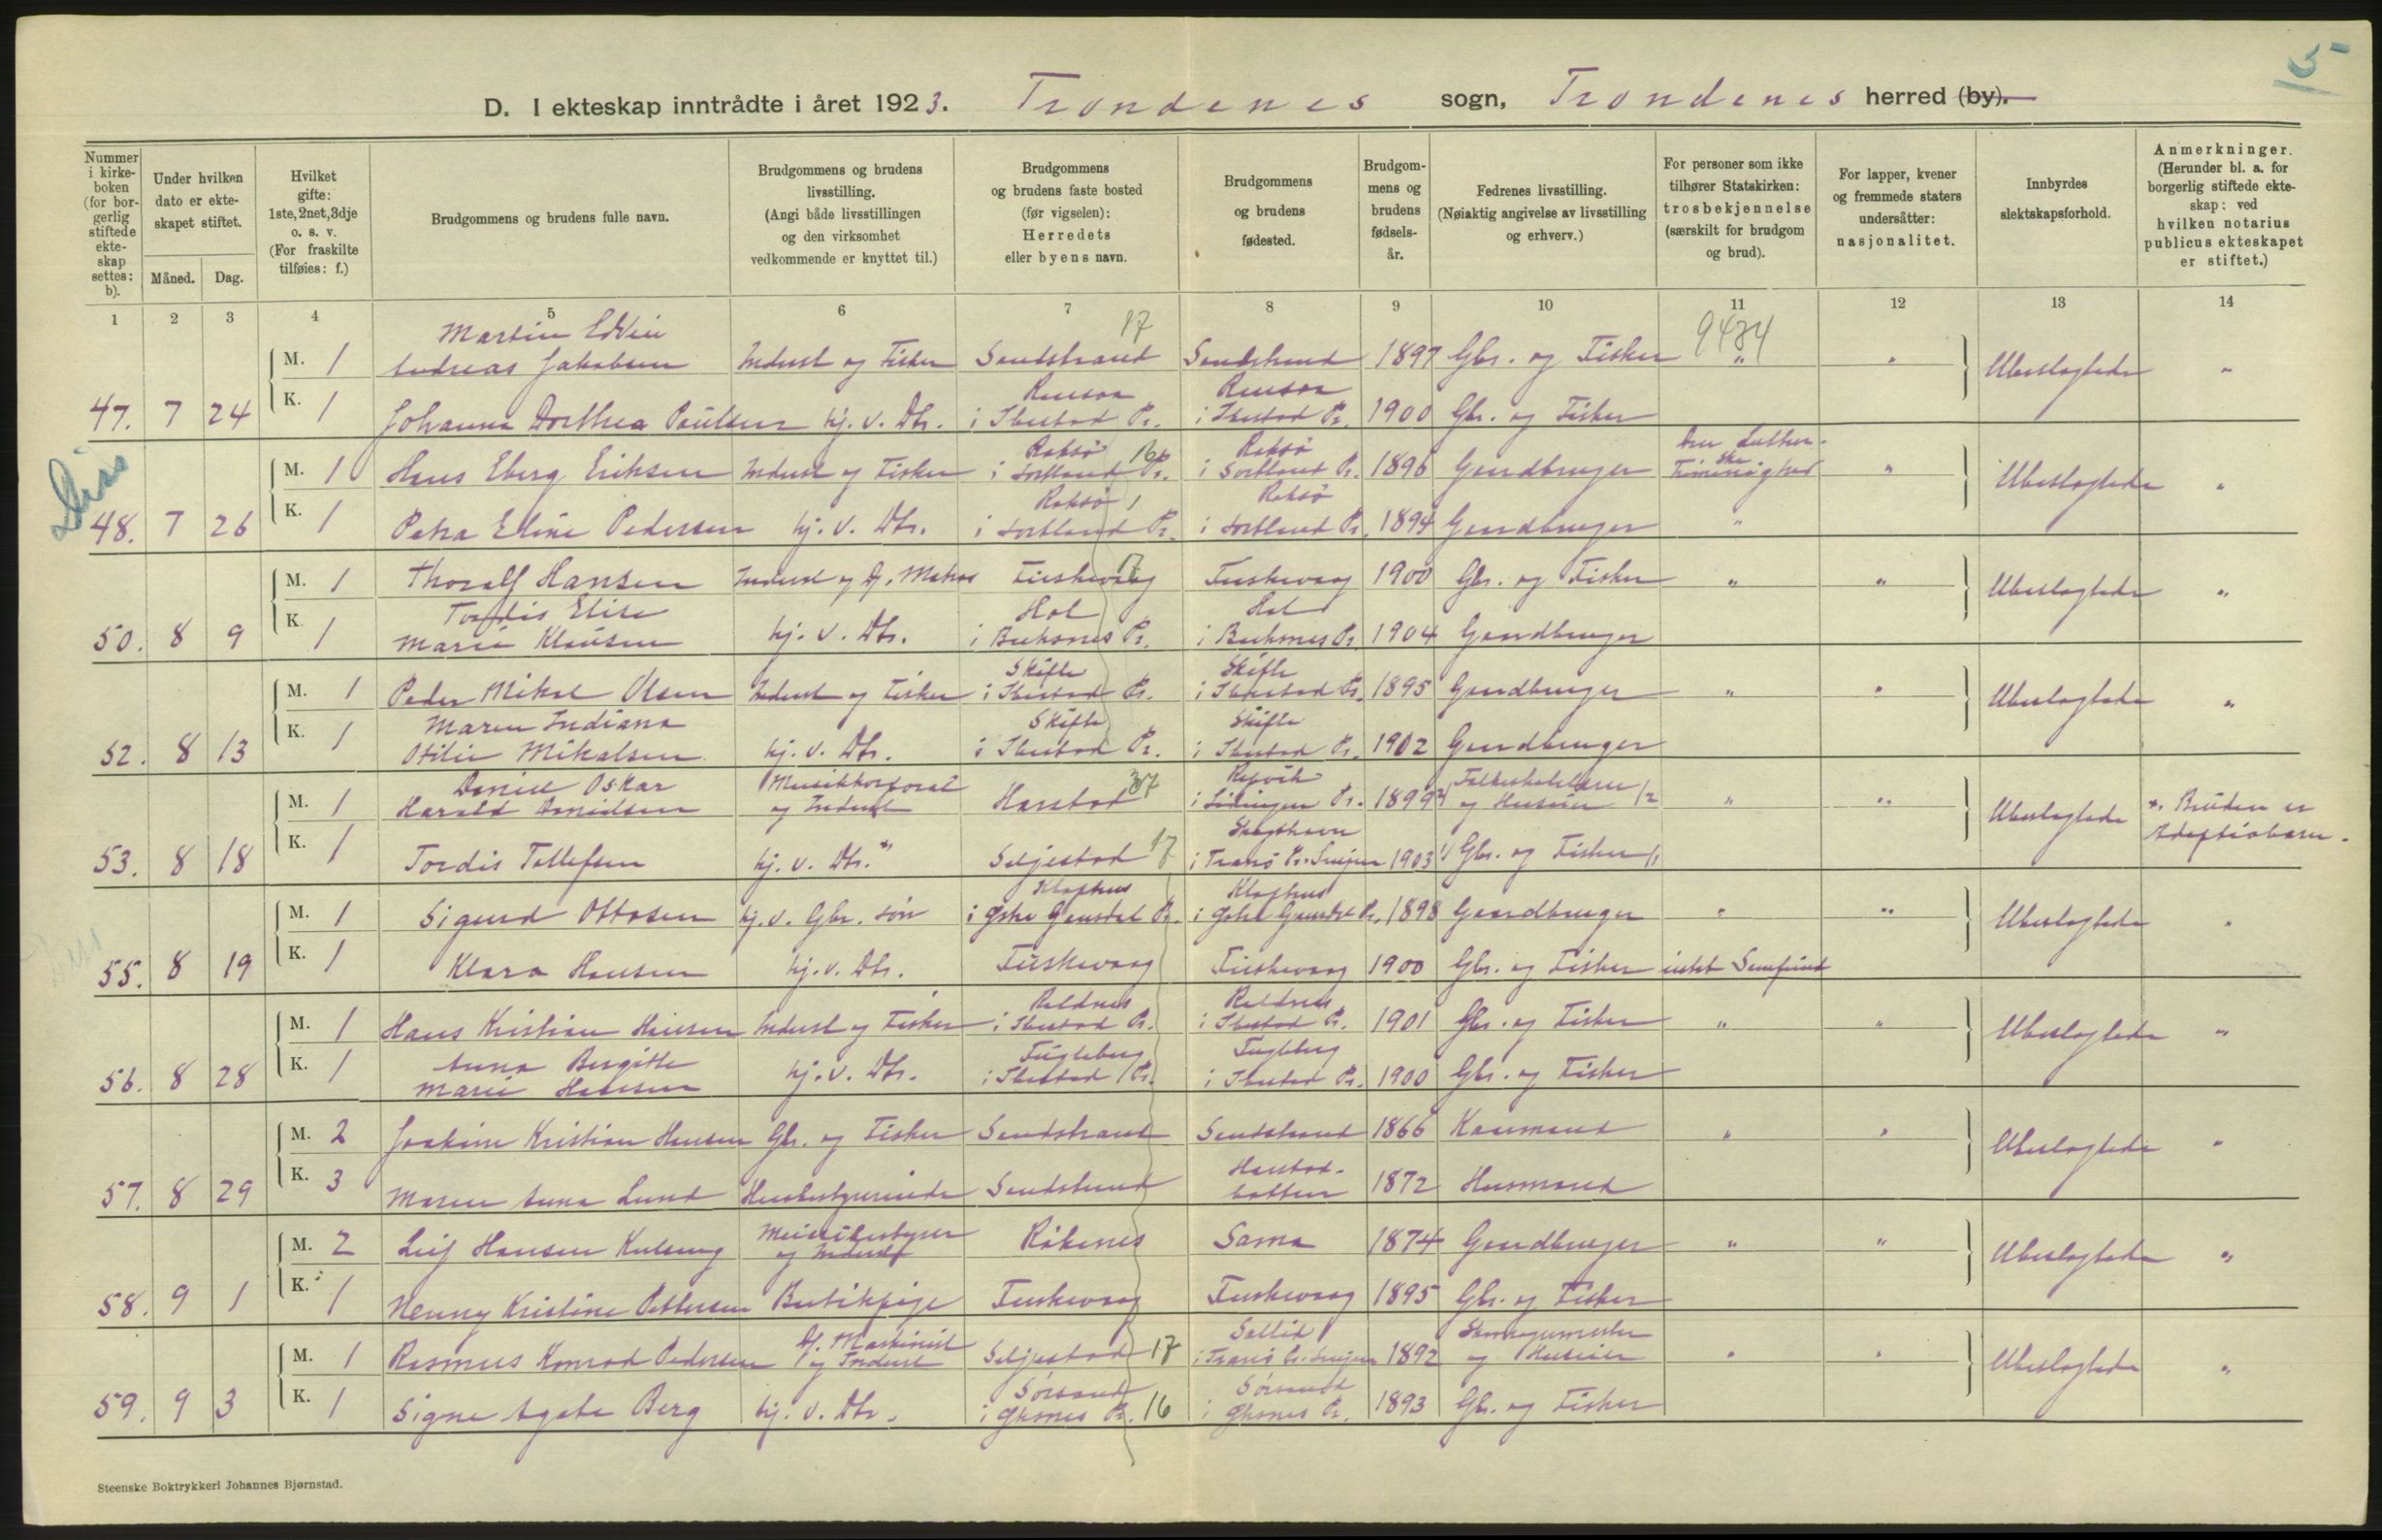 5
D. I ekteskap inntrådte i året 1923. Trondenes sogn, Trondenes herred (by).
Nummer i kirkeboken (for borgerlig stiftede ekteskap settes: b).
Under hvilken dato er ekteskapet stiftet.
Måned. Dag.
Hvilket gifte: 1ste, 2net, 3dje o. s. v. (For fraskilte tilføies: f.)
Brudgommens og brudens fulle navn.
Brudgommens og brudens livsstilling. (Angi både livsstillingen og den virksomhet vedkommende er knyttet til.)
Brudgommens og brudens faste bosted (før vigselen): Herredets eller byens navn.
Brudgommens og brudens fødested.
Brudgommens og brudens fødselsår.
Fedrenes livsstilling. (Nøiaktig angivelse av livsstilling og erhverv.)
For personer som ikke tilhører Statskirken: trosbekjennelse (særskilt for brudgom og brud).
For lapper, kvener og fremmede staters undersåtter: nasjonalitet.
Innbyrdes slektskapsforhold.
Anmerkninger. (Herunder bl. a. for borgerlig stiftede ekteskap: ved hvilken notarius publicus ekteskapet er stiftet.)
1 2 3 4 5 6 7 8 9 10 11 12 13 14
Martin Edvin 17 9484
M. 1 Andreas Jakobsen Inderst og Fisker Sandstrand Sandstrand 1897 Gbr. og Fisker " " Ubeslægtede "
47. 7 24 K. 1 Johanna Dorthea Paulsen hj. v. Dtr. i Ibestad Pr. i Ibestad Pr. 1900 Gbr. og Fisker
Diss
Roksø 16 Roksø Den Luther-
M. 1 Hans Eberg Eriksen Inderst og Fisker i Sortland Pr. i Sortland Pr. 1896 Gaardbruger ske Frimenighed " Ubeslægtede "
Roksø 1 Roksø
48. 7 26 K. 1 Petra Eline Pedersen hj. v. Dtr. i Sortland Pr. i Sortland Pr. 1894 Gaardbruger "
M. 1 Thoralf Hansen Inderst og Fuskevaag Fuskevaag 1900 Gbr. og Fisker " " Ubeslægtede "
Tordis Elise Hol Hol
50. 8 9 K. 1 Marie Klausen hj. v. Dtr. i Buksnes Pr. i Buksnes Pr. 1904 Gaardbruger
Skifte Skifte
M. 1 Peder Mikal Olsen Inderst og Fisker i Ibestad Pr. i Ibestad Pr. 1895 Gaardbruger " " Ubeslægtede "
Maren Indiana Skifte Skifte
52. 8 13 K. 1 Otilie Mikalsen hj. v. Dtr. i Ibestad Pr. i Ibestad Pr. 1902 Gaardbruger
Daniel Oskar Musikkorporal 37
M. 1 Harald Danielsen og Inderst Harstad i Lødingen Pr. 1899 og Huseier " " Ubeslægtede *. Bruden er
53. 8 18 K. 1 Tordis Tollefsen hj. v. Dtr. * Seljestad 17 i Tranø Pr. Senjen 1903 Gbr. og Fisker Adoptivbarn.
Klaphus Klaphus
M. 1 Sigurd Ottosen hj. v. Gbr. søn i Østre Gausdal Pr. i Østre Gausdal Pr. 1898 Gaardbruger " " Ubeslægtede "
55. 8 19 K. 1 Klara Hansen hj. v. Dtr. Fuskevaag Fuskevaag 1900 Gbr. og Fisker intet Samfund
M. 1 Hans Kristian Hansen Inderst og Fisker i Ibestad Pr. i Ibestad Pr. 1901 Gbr. og Fisker " " Ubeslægtede "
Anna Bergitte Fugleberg Fugleberg
56. 8 28 K. 1 Marie Hansen hj. v. Dtr. i Ibestad Pr. i Ibestad Pr. 1900 Gbr. og Fisker
M. 2 Joakim Kristian Hansen Gbr. og Fisker Sandstrand Sandstrand 1866 Husmand " " Ubeslægtede "
Harstad-
57. 8 29 K. 3 Maren Anna Lund Husbestyrerinde Sandstrand botten 1872 Husmand
Meieribestyrer
M. 2 Leif Hansen og Inderst Råkenes Sama 1874 Gaardbruger " " Ubeslægtede "
58. 9 1 K. 1 Henny Kristine Pettersen Butikpige Fuskevaag Fuskevaag 1895 Gbr. og Fisker
Maskinist
M. 1 Rasmus Konrad Pedersen og Inderst Seljestad 17 i Tranø Pr. Senjen 1892 og Huseier " " Ubeslægtede "
Sørsand Sørsand
59. 9 3 K. 1 Signe Agate Berg hj. v. Dtr. i Øksnes Pr. 16 i Øksnes Pr. 1893 Gbr. og Fisker
Steenske Boktrykkeri Johannes Bjørnstad.